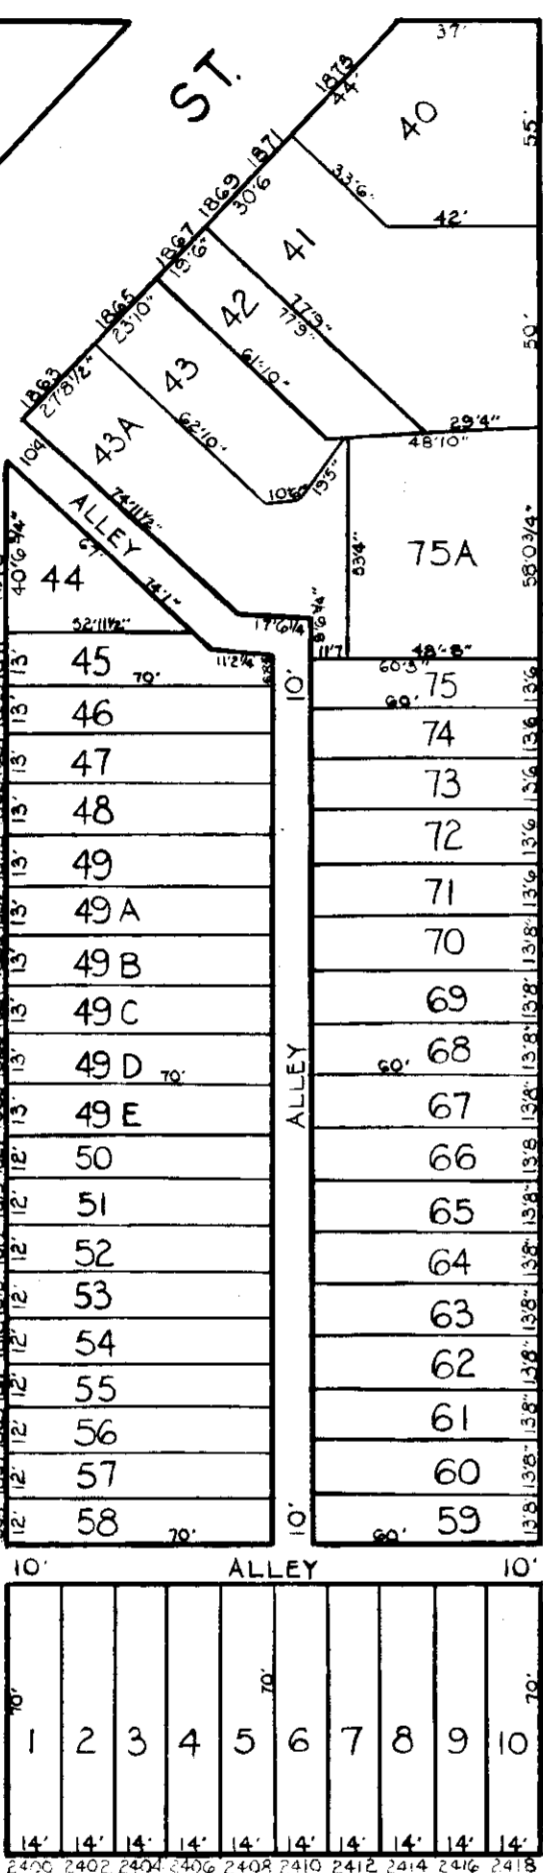 ST.
37'
1873
44'
40
55'
1871
33'6"
42'
1869
30'6
41
1867
19'6"
42
77'9"
77'9"
50'
1865
23'10"
43
61'10"
29'4"
48'10"
1863
27'8½"
43A
62'10"
10'4
19'5"
ALLEY
74'11½"
67'
74'1"
40'6¾"
44
53'4"
75A
58'0¾"
52'11½"
17'6¼
8'6¾"
11'2¼"
11'7
48'-8"
60'3"
13' 45 70'
10'
75 13'6
60'
13' 46
74 13'6
13' 47
73 13'6
13' 48
72 13'6
13' 49
71 13'6
13' 49A
70 13'8"
13' 49B
69 13'8"
13' 49C
68 13'8"
60'
13' 49D 70'
67 13'8"
13' 49E
66 13'8
ALLEY
12' 50
65 13'8"
12' 51
64 13'8"
12' 52
63 13'8"
12' 53
62 13'8"
12' 54
61 13'8"
12' 55
60 13'8"
12' 56
59 13'8"
12' 57
12' 58 70'
10'
60'
10' ALLEY 10'
70' 70' 70'
1 2 3 4 5 6 7 8 9 10
14' 14' 14' 14' 14' 14' 14' 14' 14' 14'
2400 2402 2404 2406 2408 2410 2412 2414 2416 2418